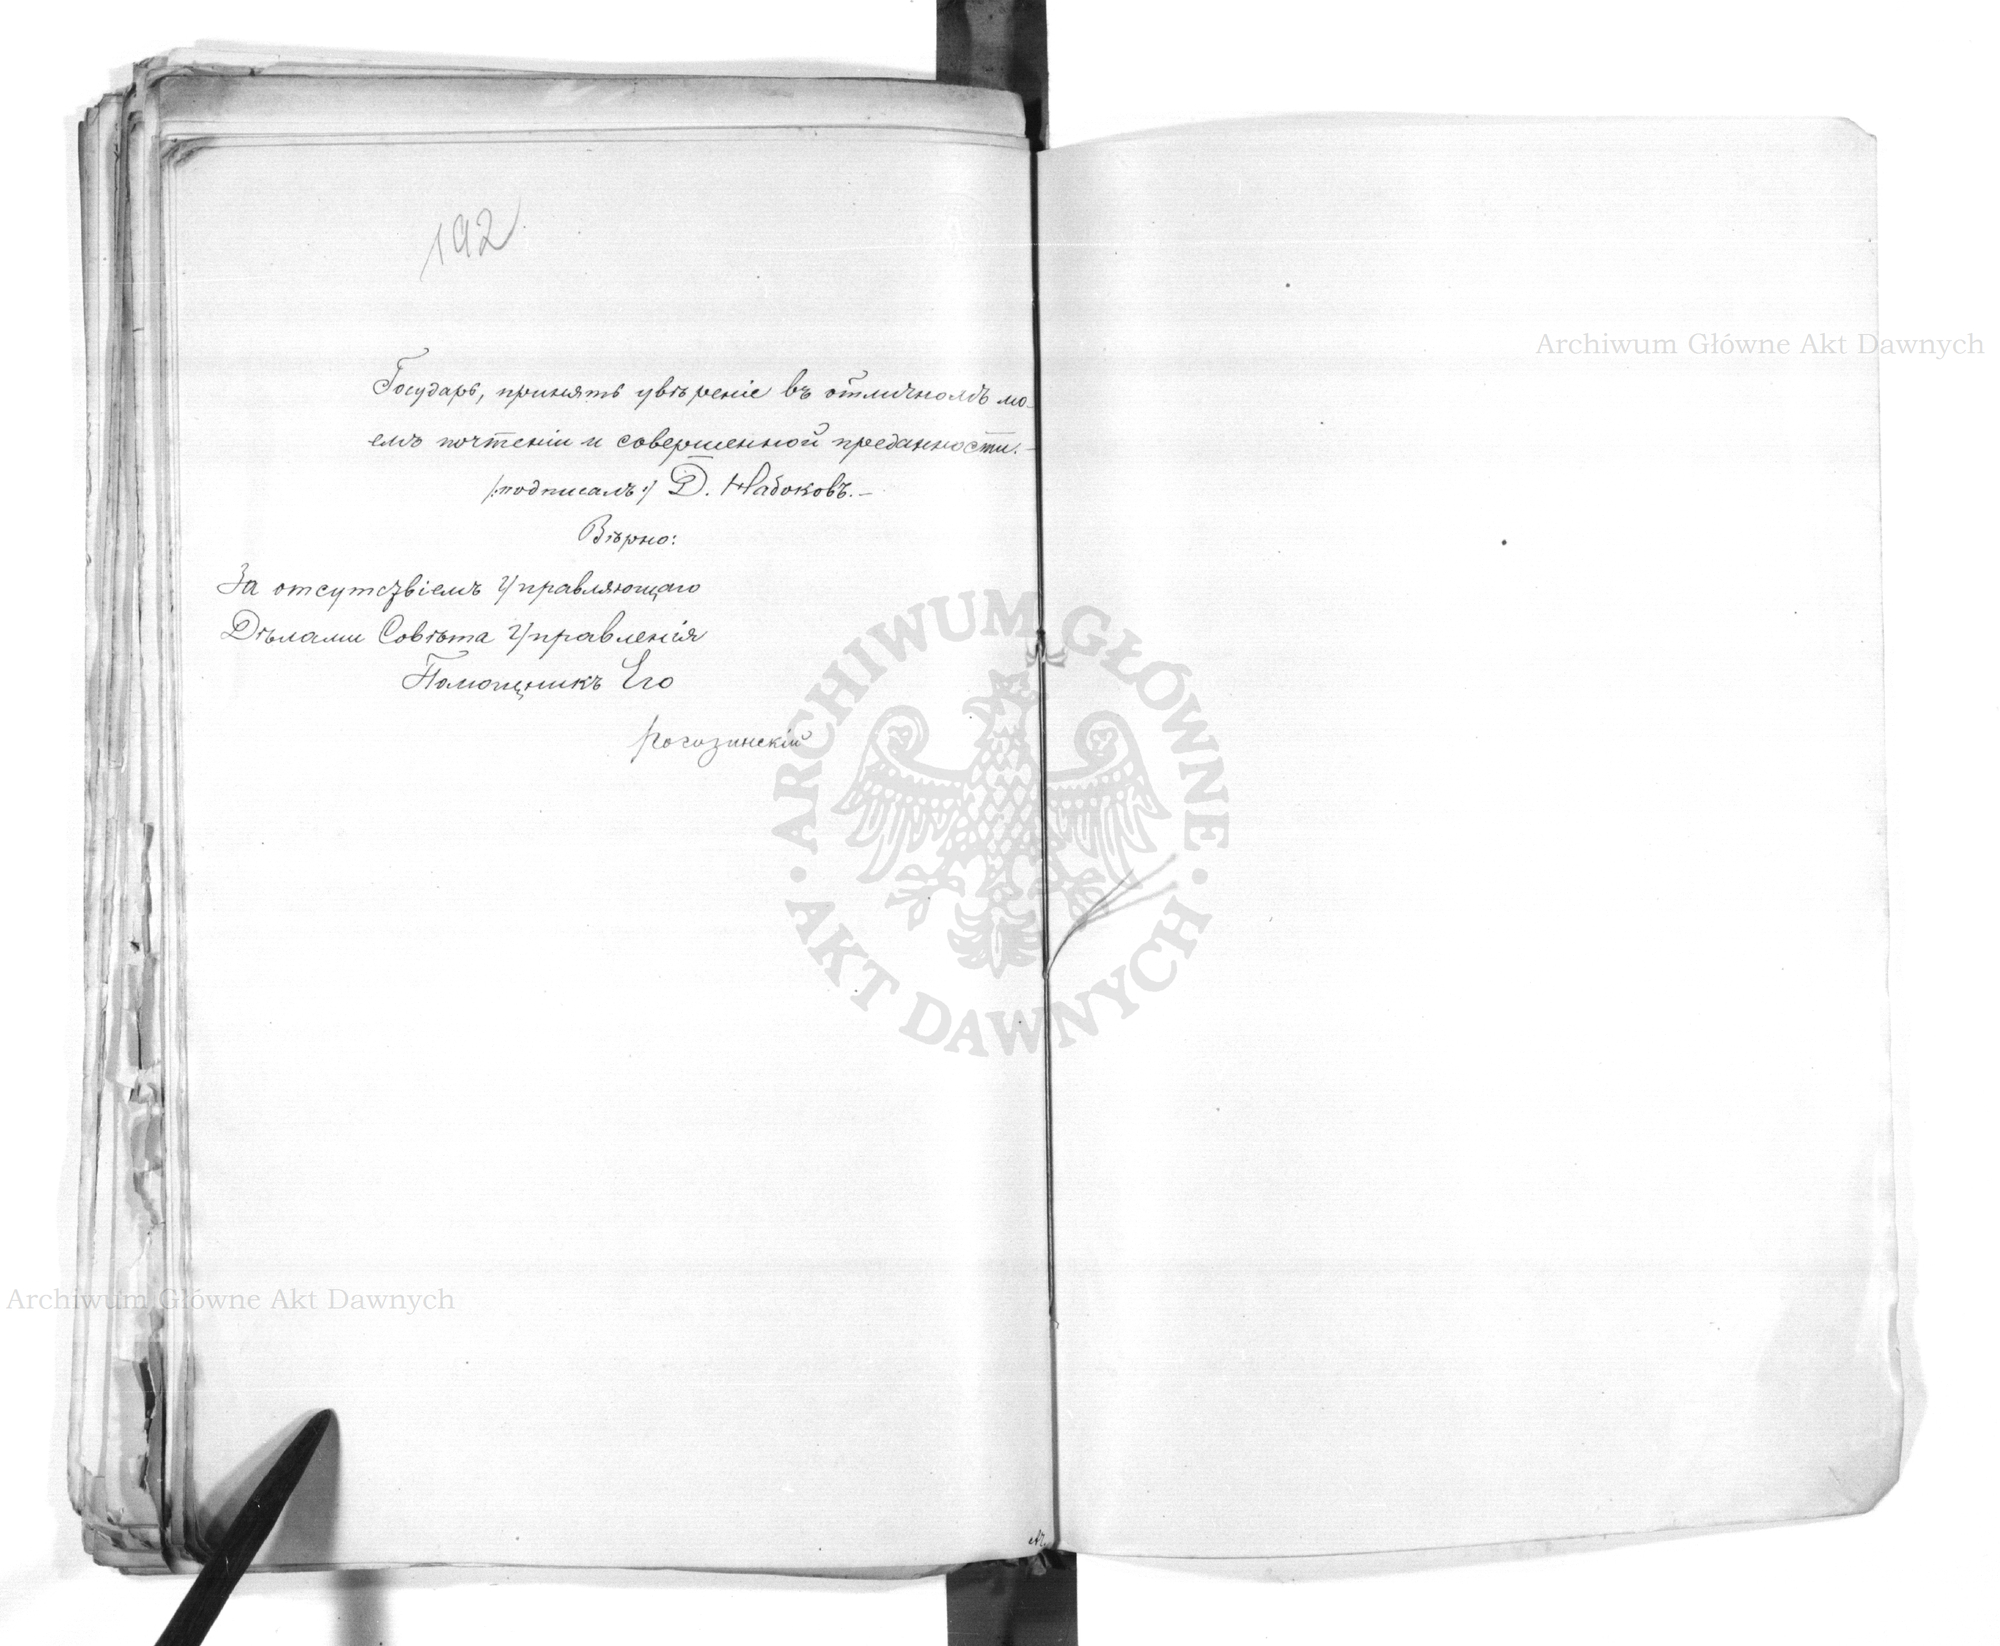 192
Государь, принять увѣреніе въ отличномъ мо-
емъ почтеніи и совершенной преданности.-
/:подписалъ:/ Д. Набоковъ.-
Вѣрно:
За отсутствіемъ Управляющаго
Дѣлами Совѣта Управленія
Помощникъ Его
Рогозинскій
Archiwum Główne Akt Dawnych
ARCHIWUM GŁÓWNE
AKT DAWNYCH
Archiwum Główne Akt Dawnych